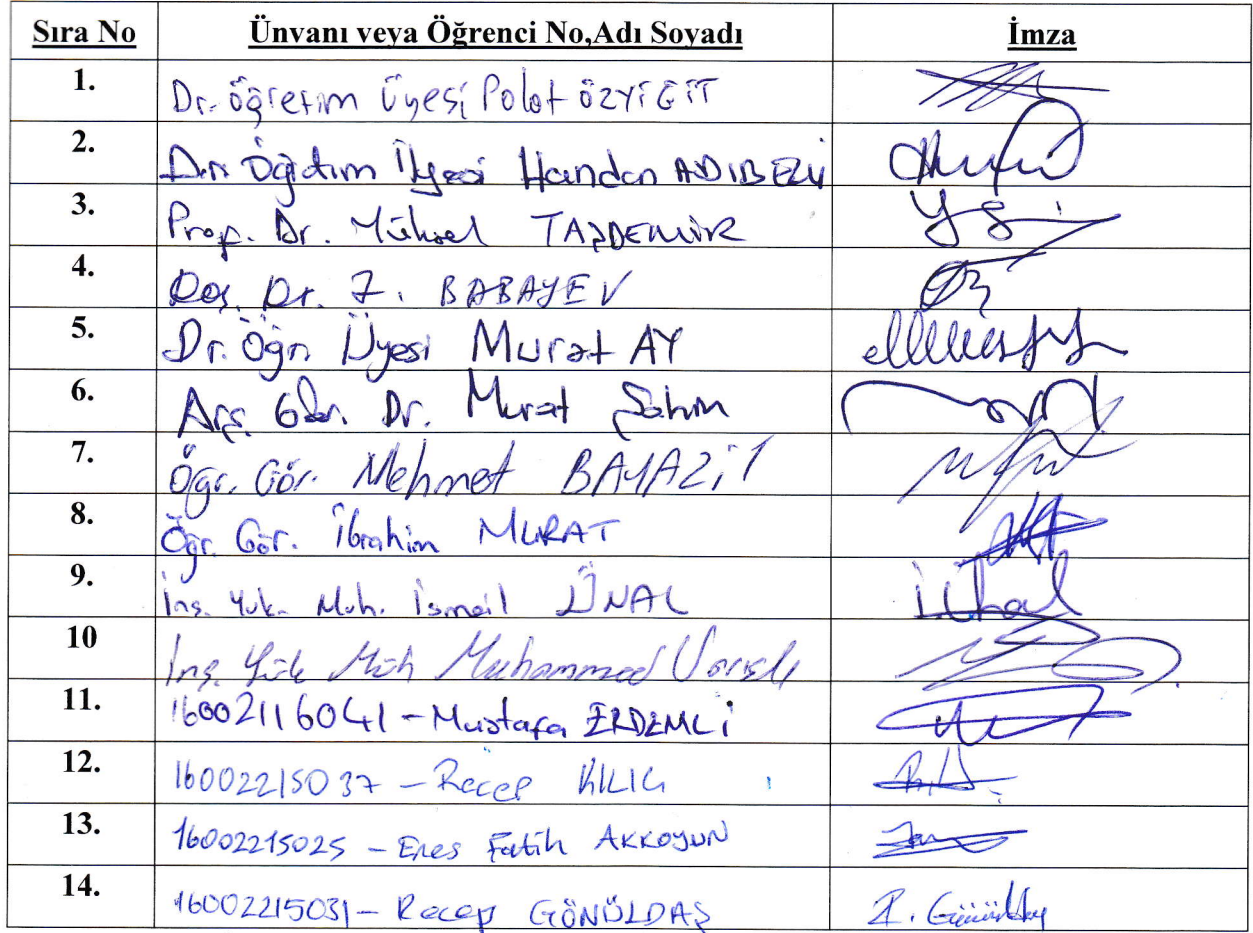 Sıra No Ünvanı veya Öğrenci No,Adı Soyadı İmza
1. Dr. Öğretim Üyesi Polat ÖZYİĞİT
2. Dr. Öğretim Üyesi Handan ADIBELLİ
3. Prof. Dr. Yüksel TAŞDEMİR
4. Doç. Dr. Z. BABAYEV
5. Dr. Öğn Üyesi Murat AY
6. Arş. Gör. Dr. Murat Şahin
7. Öğr. Gör. Mehmet BAYAZiT
8. Öğr. Gör. İbrahim MURAT
9. İnş. Yük. Müh. İsmail ÜNAL
10 İnş. Yük Müh Muhammed
11. 16002116041 - Mustafa ERDEMLİ
12. 16002215037 - Recep KILIÇ
13. 16002215025 - Enes Fatih AKKOYUN
14. 16002215031 - Recep GÖNÜLDAŞ